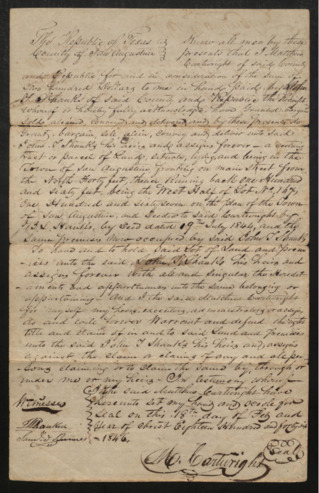 The Republic of Texas } Know all men by these
County of San Augustine } presents that I Matthew
Cartwright of said County
and Republic for and in consideration of the sum of
Five hundred dollars to me in hand paid by John
T. Shanks of said County and Republic the
whereof is hereby fully acknowledged have
sold aliened conveyed and delivered and by these presents do
Grant, bargain, sell, alien, convey and deliver unto said
John T. Shanks his heirs and assigns forever a certain
tract or parcel of Land, situate, lying and being in the
Town of San Augustine fronting on Main Street from
the North feet, thence running back one hundred
and sixty feet, being the West Half of Lot No. 167
One Hundred and sixty seven on the plan of the Town of
San Augustine, and Deeded to said Cartwright by
Hanks, by Deed dated 19th July 1844, and the
same premises now occupied by said John T. Shanks
To Have and to hold said Lot of Land and premi-
ses unto the said John T. Shanks his heirs and
assigns forever with all and singular the Heredit-
aments and appurtenances unto the same belonging or
appertaining. And I the said Matthew Cartwright
for my self my heirs, executors, administrators or assigns
do and will forever Warrant and defend the
title and claim of in and to said Land and premises
unto the said John T. Shanks his heirs and assigns
against the claim or claims of any and all per-
sons claiming or to claim the same by, through or
under me or my heirs. In testimony whereof
I the said Matthew Cartwright have
Witnesses hereunto set my hand and scroll for
Seal on this 18th day of Feb and
year of Christ Eighteen hundred and forty six
- 1846.
M. Cartwright Seal